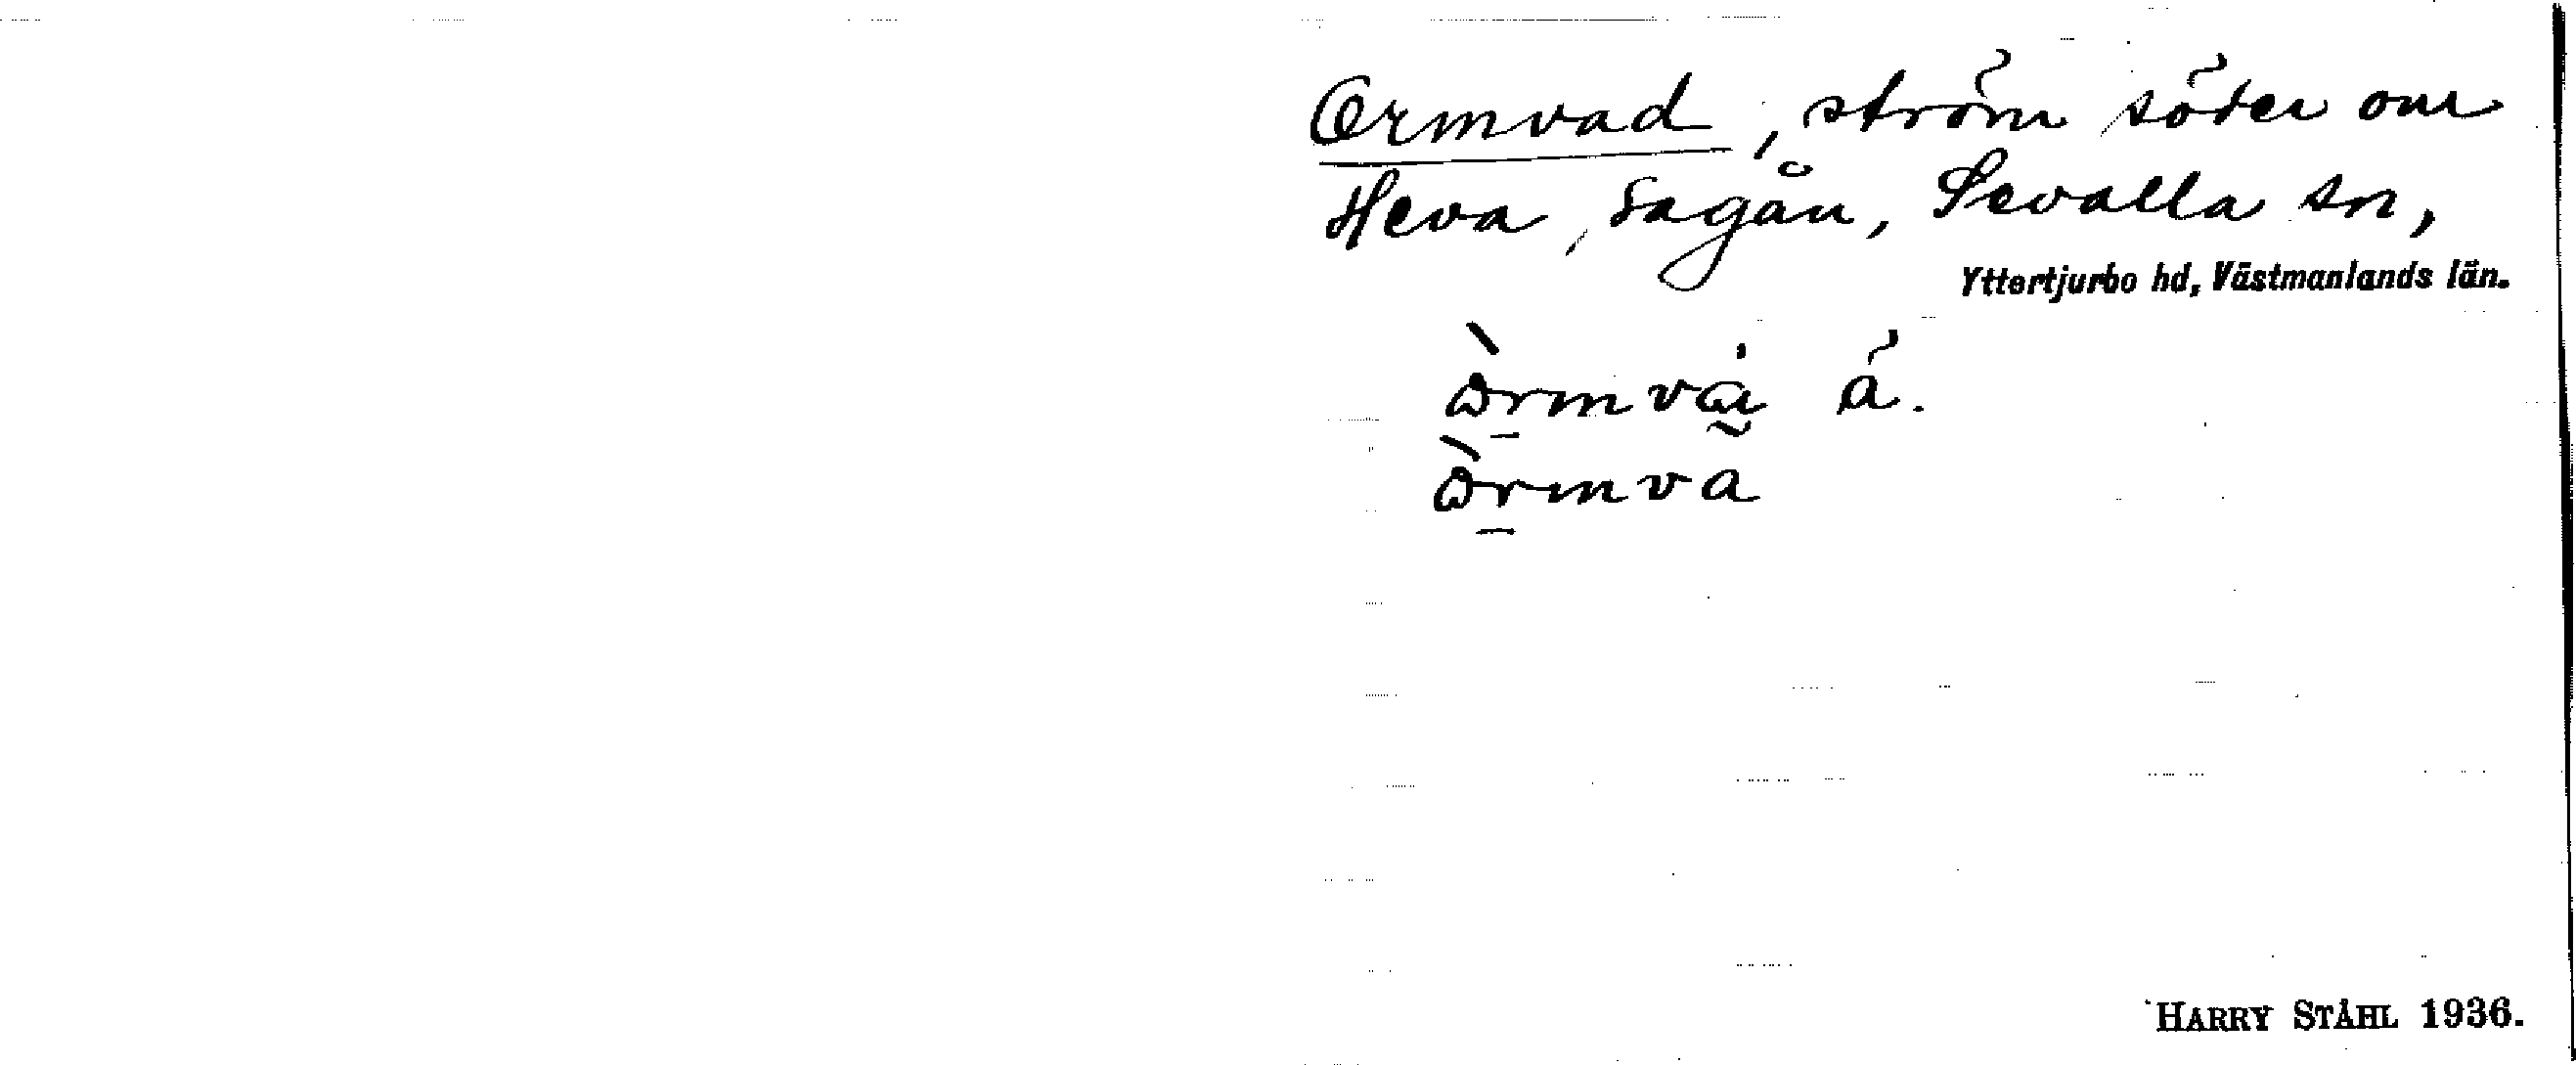 Ormvad, ström söder om
Heva, Sagån, Sevalla sn,
Yttertjurbo hd, Västmanlands län.
HARRY STÅHL 1936.